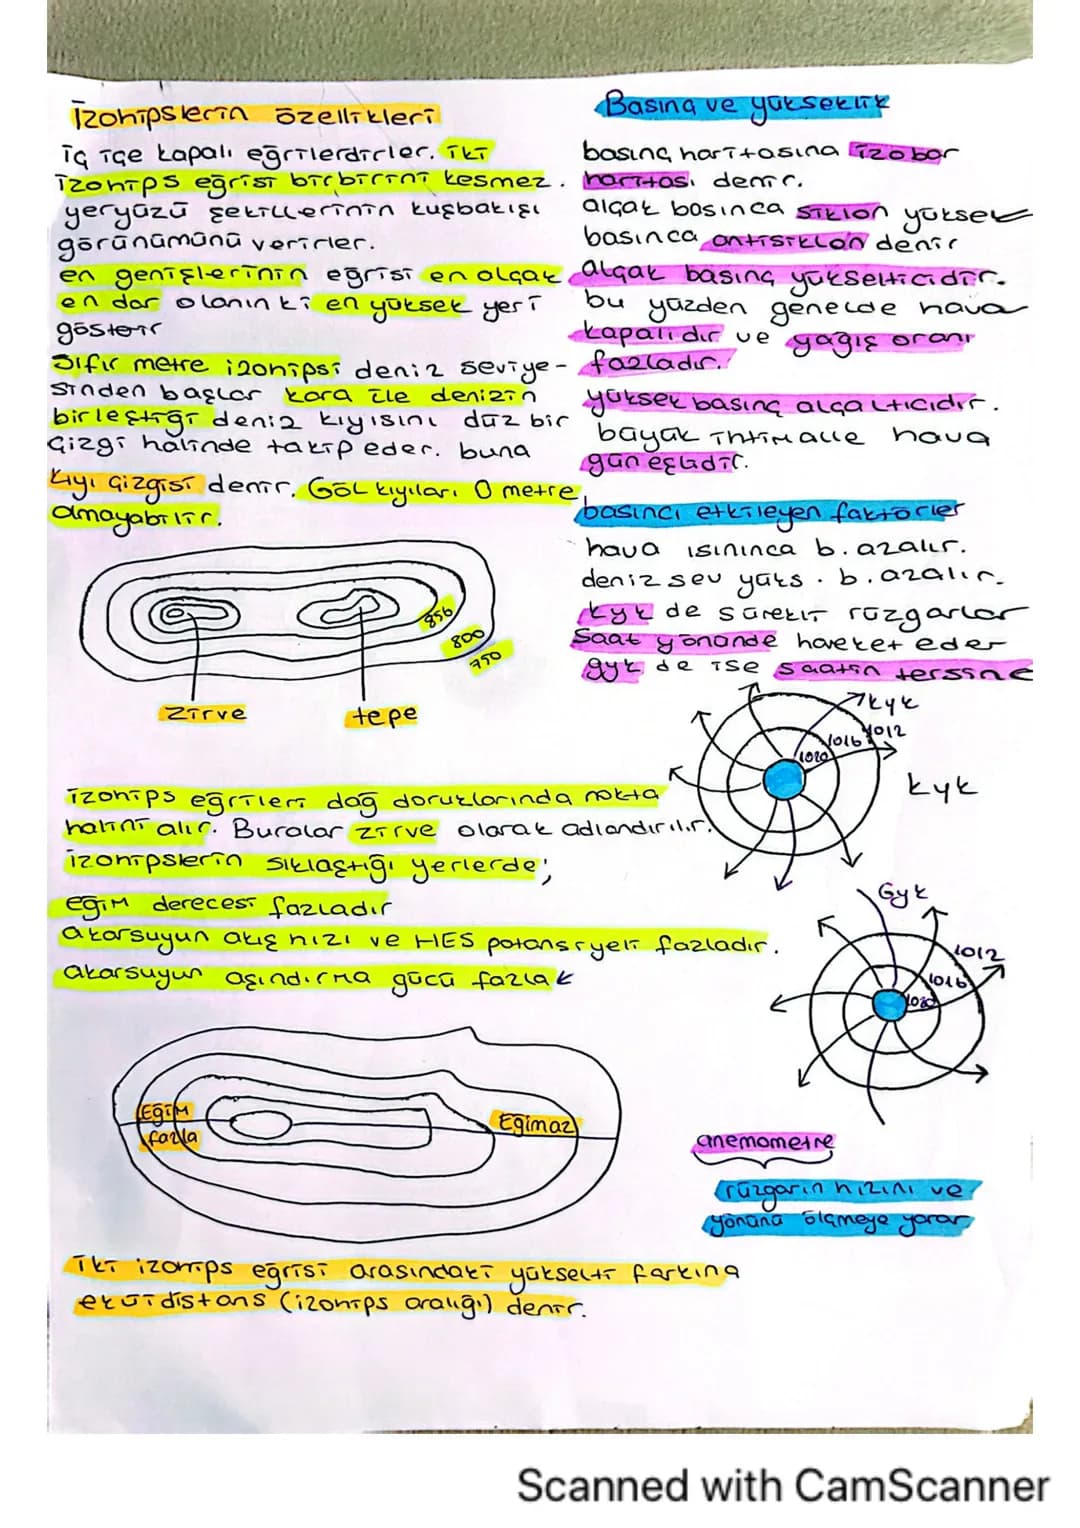 İzohipslerin özellikleri
iç içe kapalı eğrilerdirler. iki
izohips eğrisi birbirini kesmez.
yeryüzü şekillerinin kuşbakışı
görünümünü verirler.
en genişlerinin eğrisi en alçak
en dar olanın ki en yüksek yeri
gösterir
Sıfır metre izohipsi deniz seviye-
sinden başlar kara ile denizin
birleştiği deniz kıyısını düz bir
çizgi halinde takip eder. buna
kıyı çizgisi denir. Göl kıyıları 0 metre
olmayabilir.
856
800
750
zirve
tepe
izohips eğrileri dağ doruklarında nokta
halini alır. Buralar zirve olarak adlandırılır.
izohipslerin sıklaştığı yerlerde;
eğim derecesi fazladır
akarsuyun akış hızı ve HES potansiyeli fazladır.
akarsuyun aşındırma gücü fazla
Eğim
fazla
Eğimaz
iki izohips eğrisi arasındaki yükselti farkına
eküidistans (izohips aralığı) denir.
Basınç ve yükseklik
basınç haritasına izobar
haritası denir.
alçak basınca siklon yüksek
basınca antisiklon denir
alçak basınç yükselticidir.
bu yüzden genelde hava
kapalıdır ve yağış oranı
fazladır.
yüksek basınç alçaltıcıdır.
büyük ihtimalle hava
güneşlidir.
basıncı etkileyen faktörler
hava ısınınca b. azalır.
deniz sev yüks. b. azalır.
kyk de sürekli rüzgarlar
Saat yönünde hareket eder
gyk de ise saatin tersine
kyk
1012
1016
1020
kyk
Gyk
1012
1016
1020
anemometre
rüzgarın hızını ve
yönünü ölçmeye yarar
Scanned with CamScanner